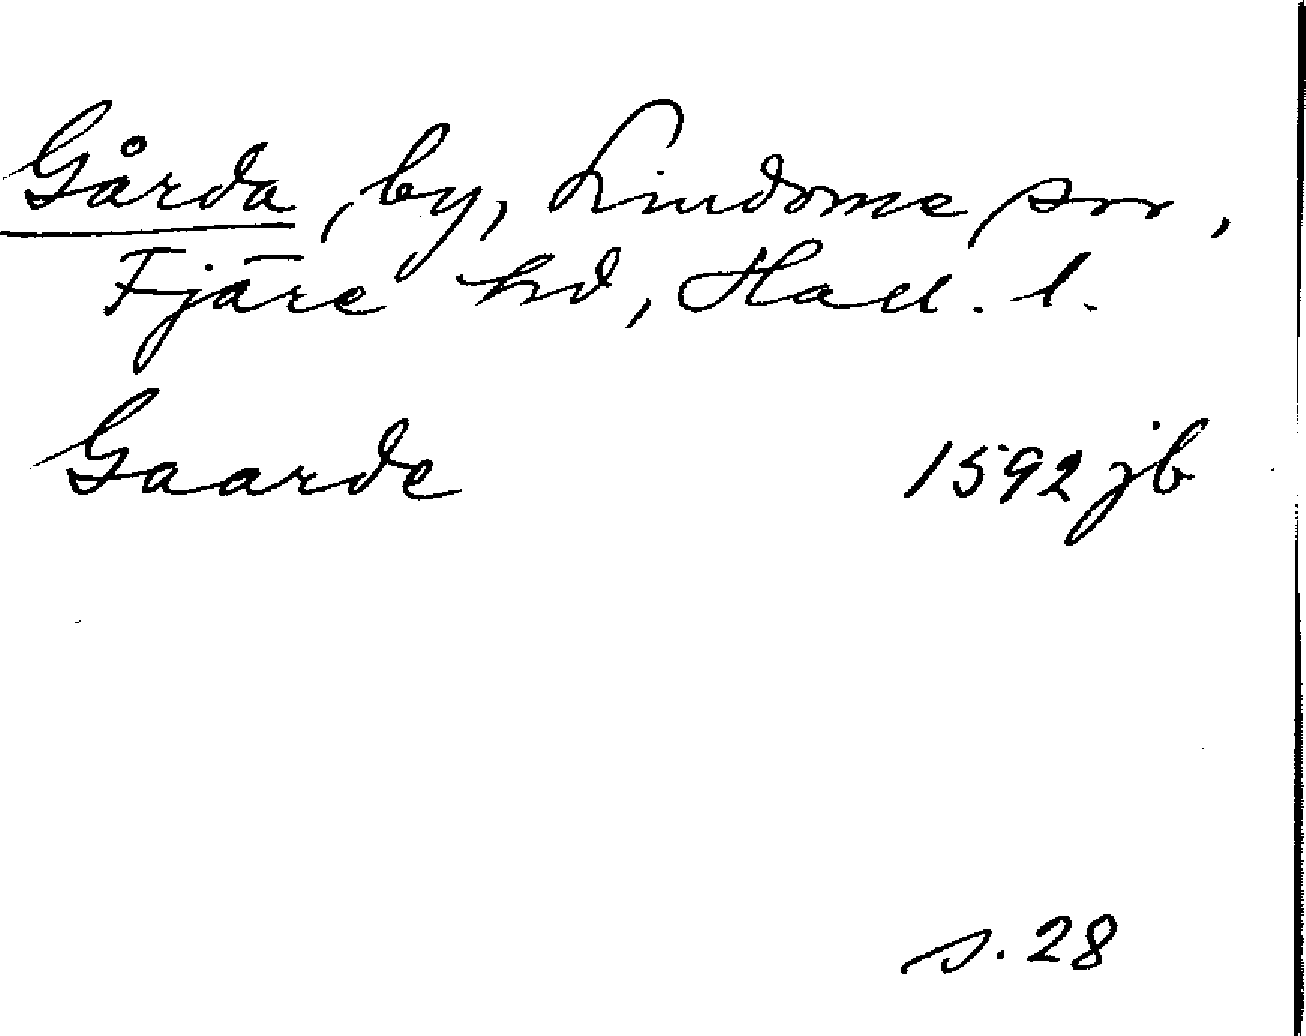 Gårda, by, Lindome srr,
Fjäre hd, Hall. l.
Gaarde 1592 jb
s. 28